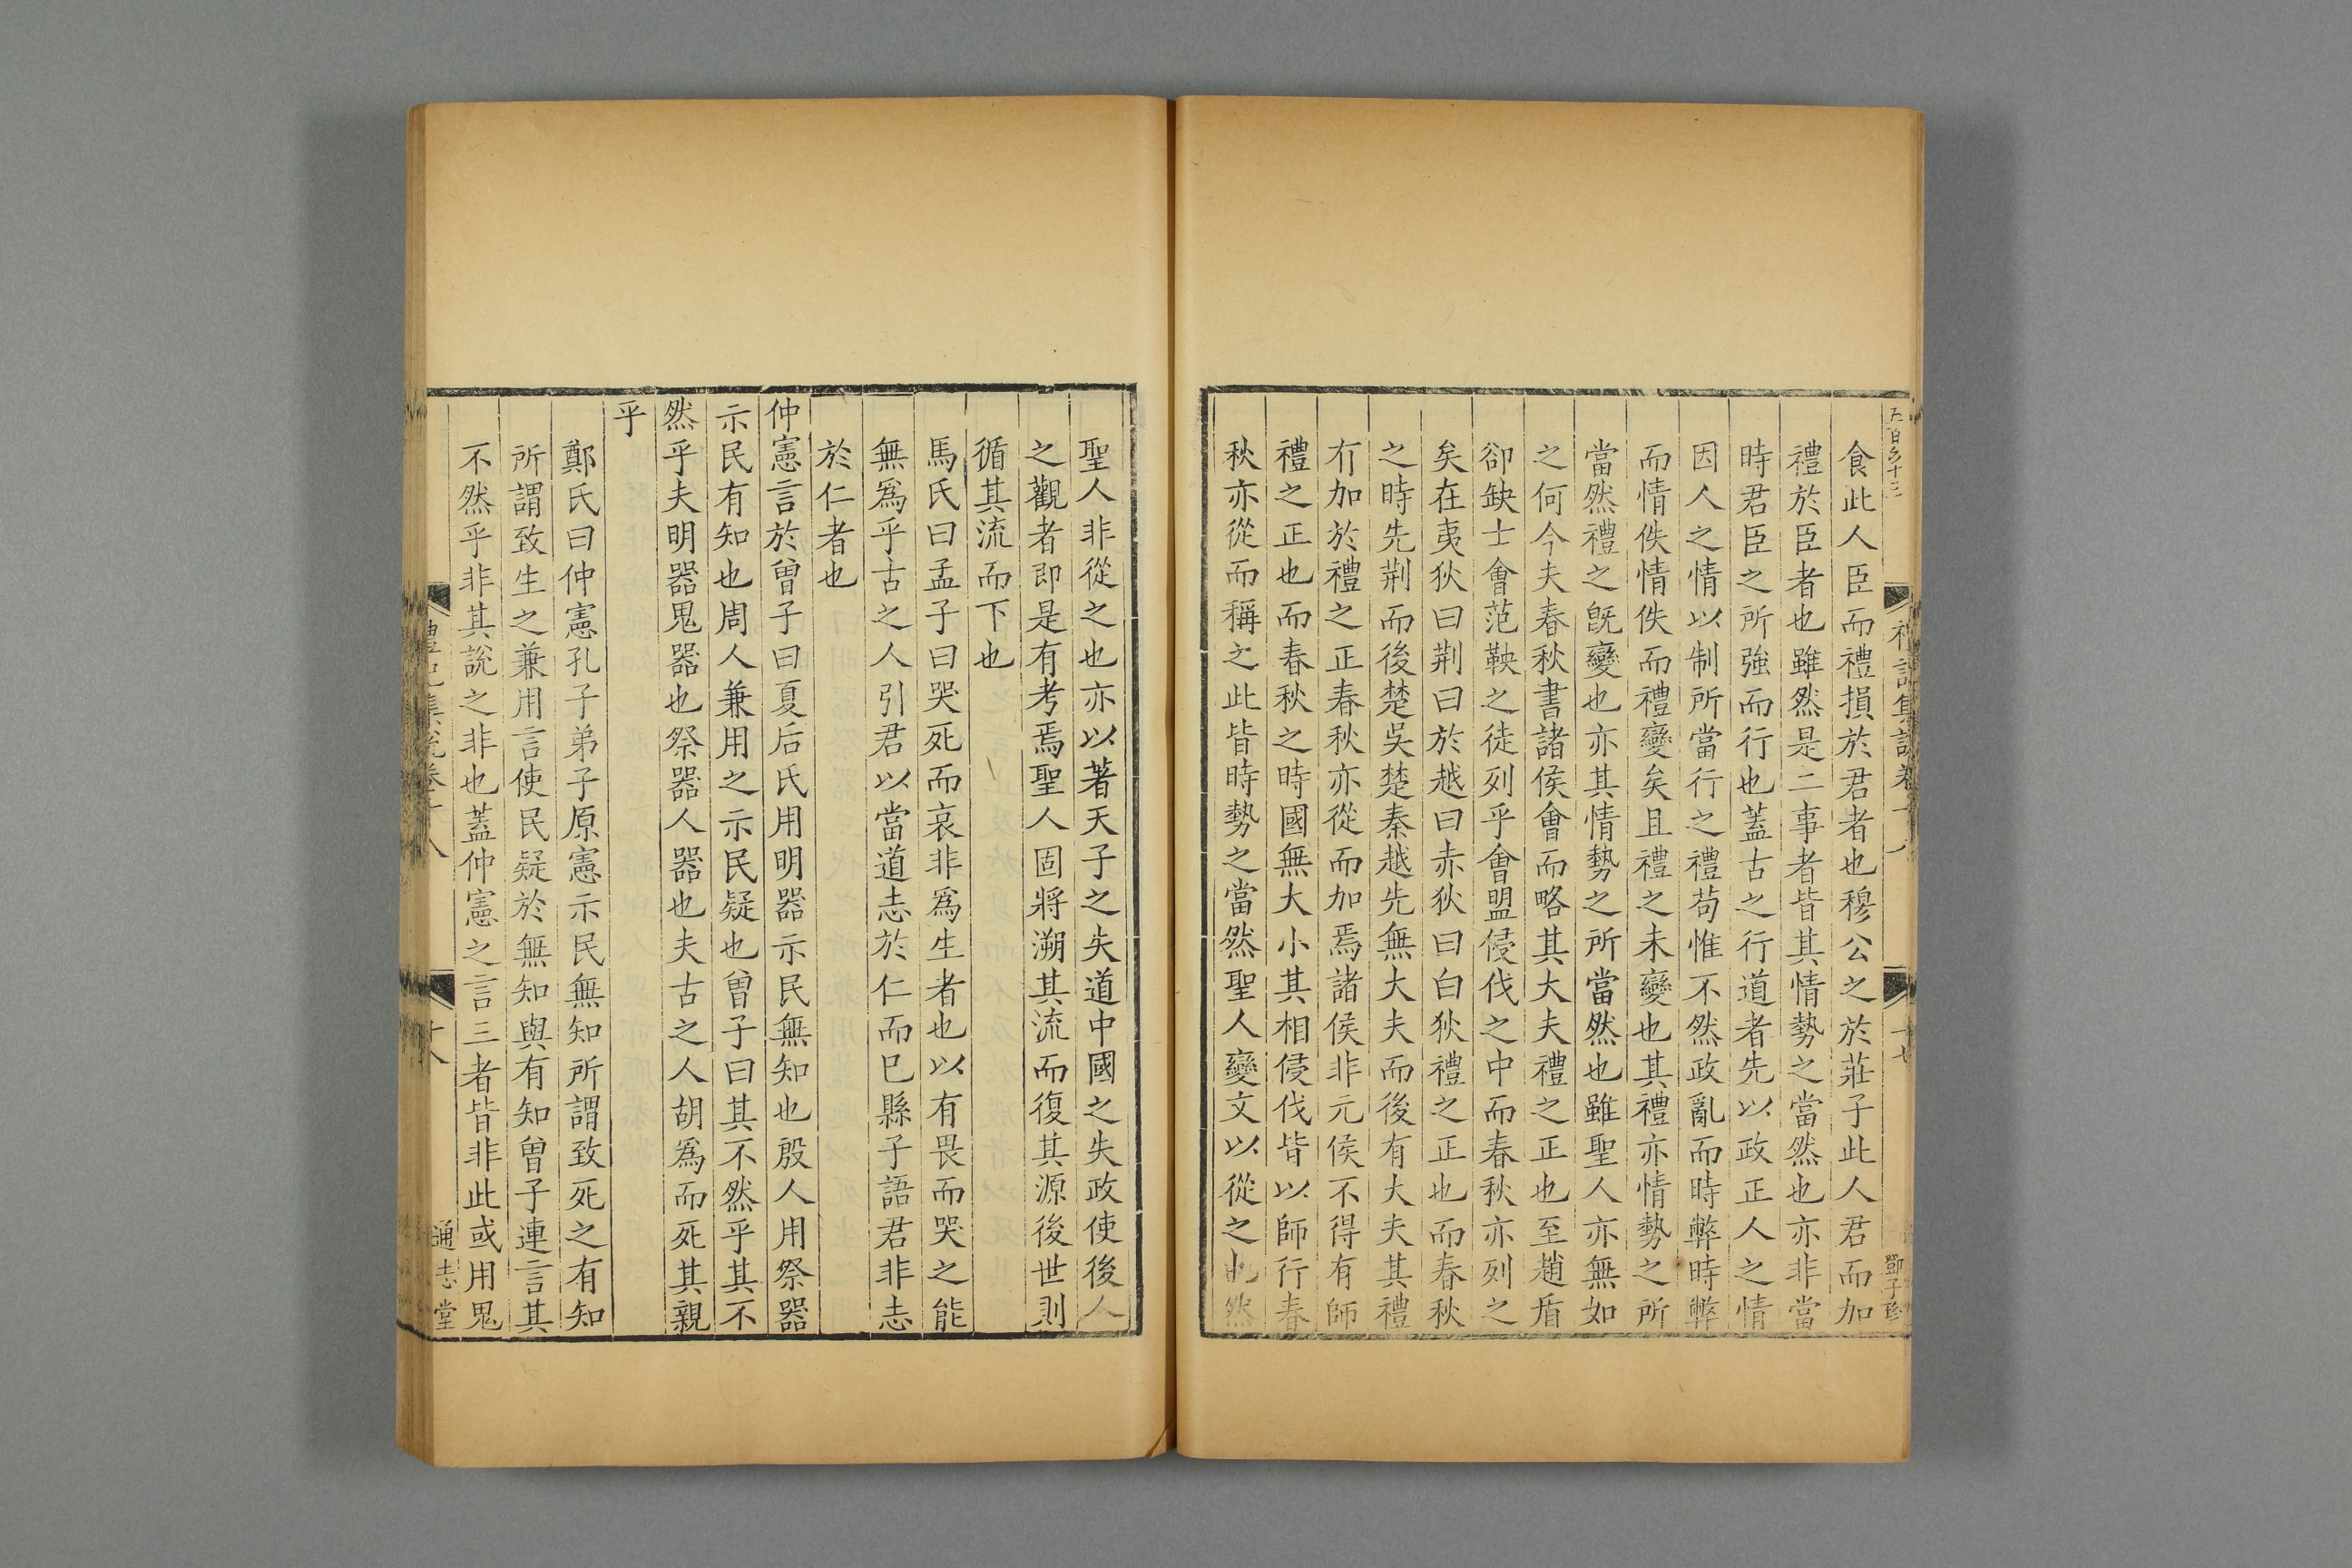 禮記集說卷十八
十七
鄧子珍
食此人臣而禮損於君者也穆公之於莊子此人君而加
禮於臣者也雖然是二事者皆其情勢之當然也亦非當
時君臣之所強而行也蓋古之行道者先以政正人之情
因人之情以制所當行之禮苟惟不然政亂而時弊時弊
而情佚情佚而禮變矣且禮之未變也其禮亦情勢之所
當然禮之旣變也亦其情勢之所當然也雖聖人亦無如
之何今夫春秋書諸侯會而略其大夫禮之正也至趙盾
卻缺士會范鞅之徒列乎會盟侵伐之中而春秋亦列之
矣在夷狄曰荆曰於越曰赤狄曰白狄禮之正也而春秋
之時先荆而後楚吳楚秦越先無大夫而後有大夫其禮
冇加於禮之正春秋亦從而加焉諸侯非元侯不得有師
禮之正也而春秋之時國無大小其相侵伐皆以師行春
秋亦從而稱之此皆時勢之當然聖人變文以從之也然
聖人非從之也亦以著天子之失道中國之失政使後人
之觀者即是有考焉聖人固將溯其流而復其源後世則
循其流而下也
馬氏曰孟子曰哭死而哀非爲生者也以有畏而哭之能
無爲乎古之人引君以當道志於仁而已縣子語君非志
於仁者也
仲憲言於曾子曰夏后氏用明器示民無知也殷人用祭器
示民有知也周人兼用之示民疑也曾子曰其不然乎其不
然乎夫明器鬼器也祭器人器也夫古之人胡爲而死其親
乎
鄭氏曰仲憲孔子弟子原憲示民無知所謂致死之有知
所謂致生之兼用言使民疑於無知與有知曾子連言其
不然乎非其說之非也蓋仲憲之言三者皆非此或用鬼
禮記集說卷十八
十八
通志堂